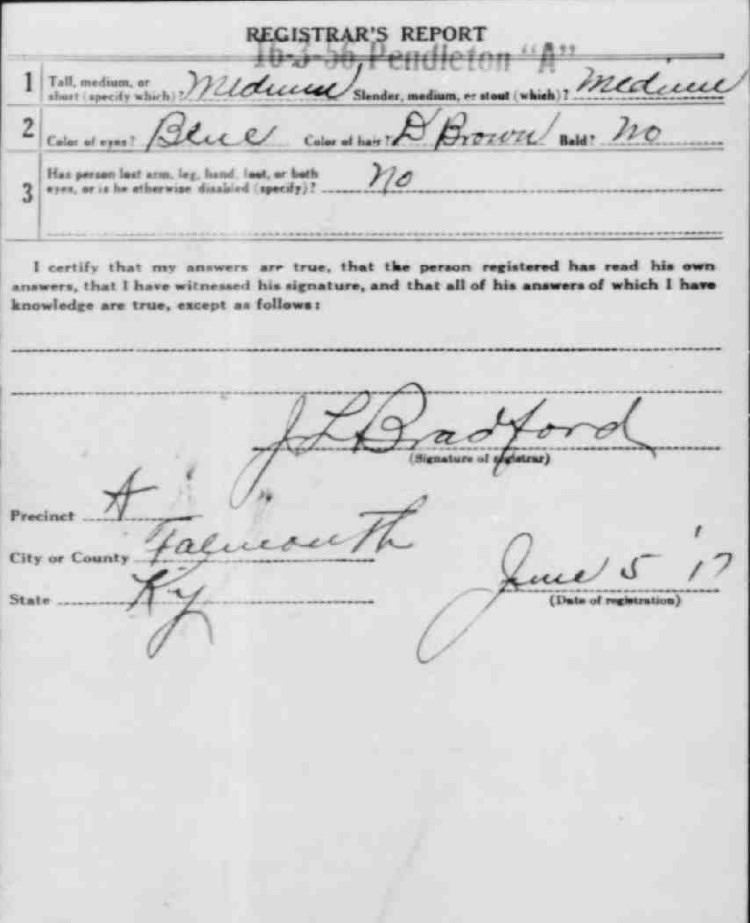 REGISTRAR'S REPORT
16-3-56 Pendleton "A"
1 Tall, medium, or short (specify which)? Medium Slender, medium, or stout (which)? Medium
2 Color of eyes? Blue Color of hair? D Brown Bald? No
3 Has person lost arm, leg, hand, foot, or both
eyes, or is he otherwise disabled (specify)? No
I certify that my answers are true, that the person registered has read his own
answers, that I have witnessed his signature, and that all of his answers of which I have
knowledge are true, except as follows:
J L Bradford
(Signature of registrar)
Precinct A
City or County Falmouth
State Ky
June 5 '17
(Date of registration)